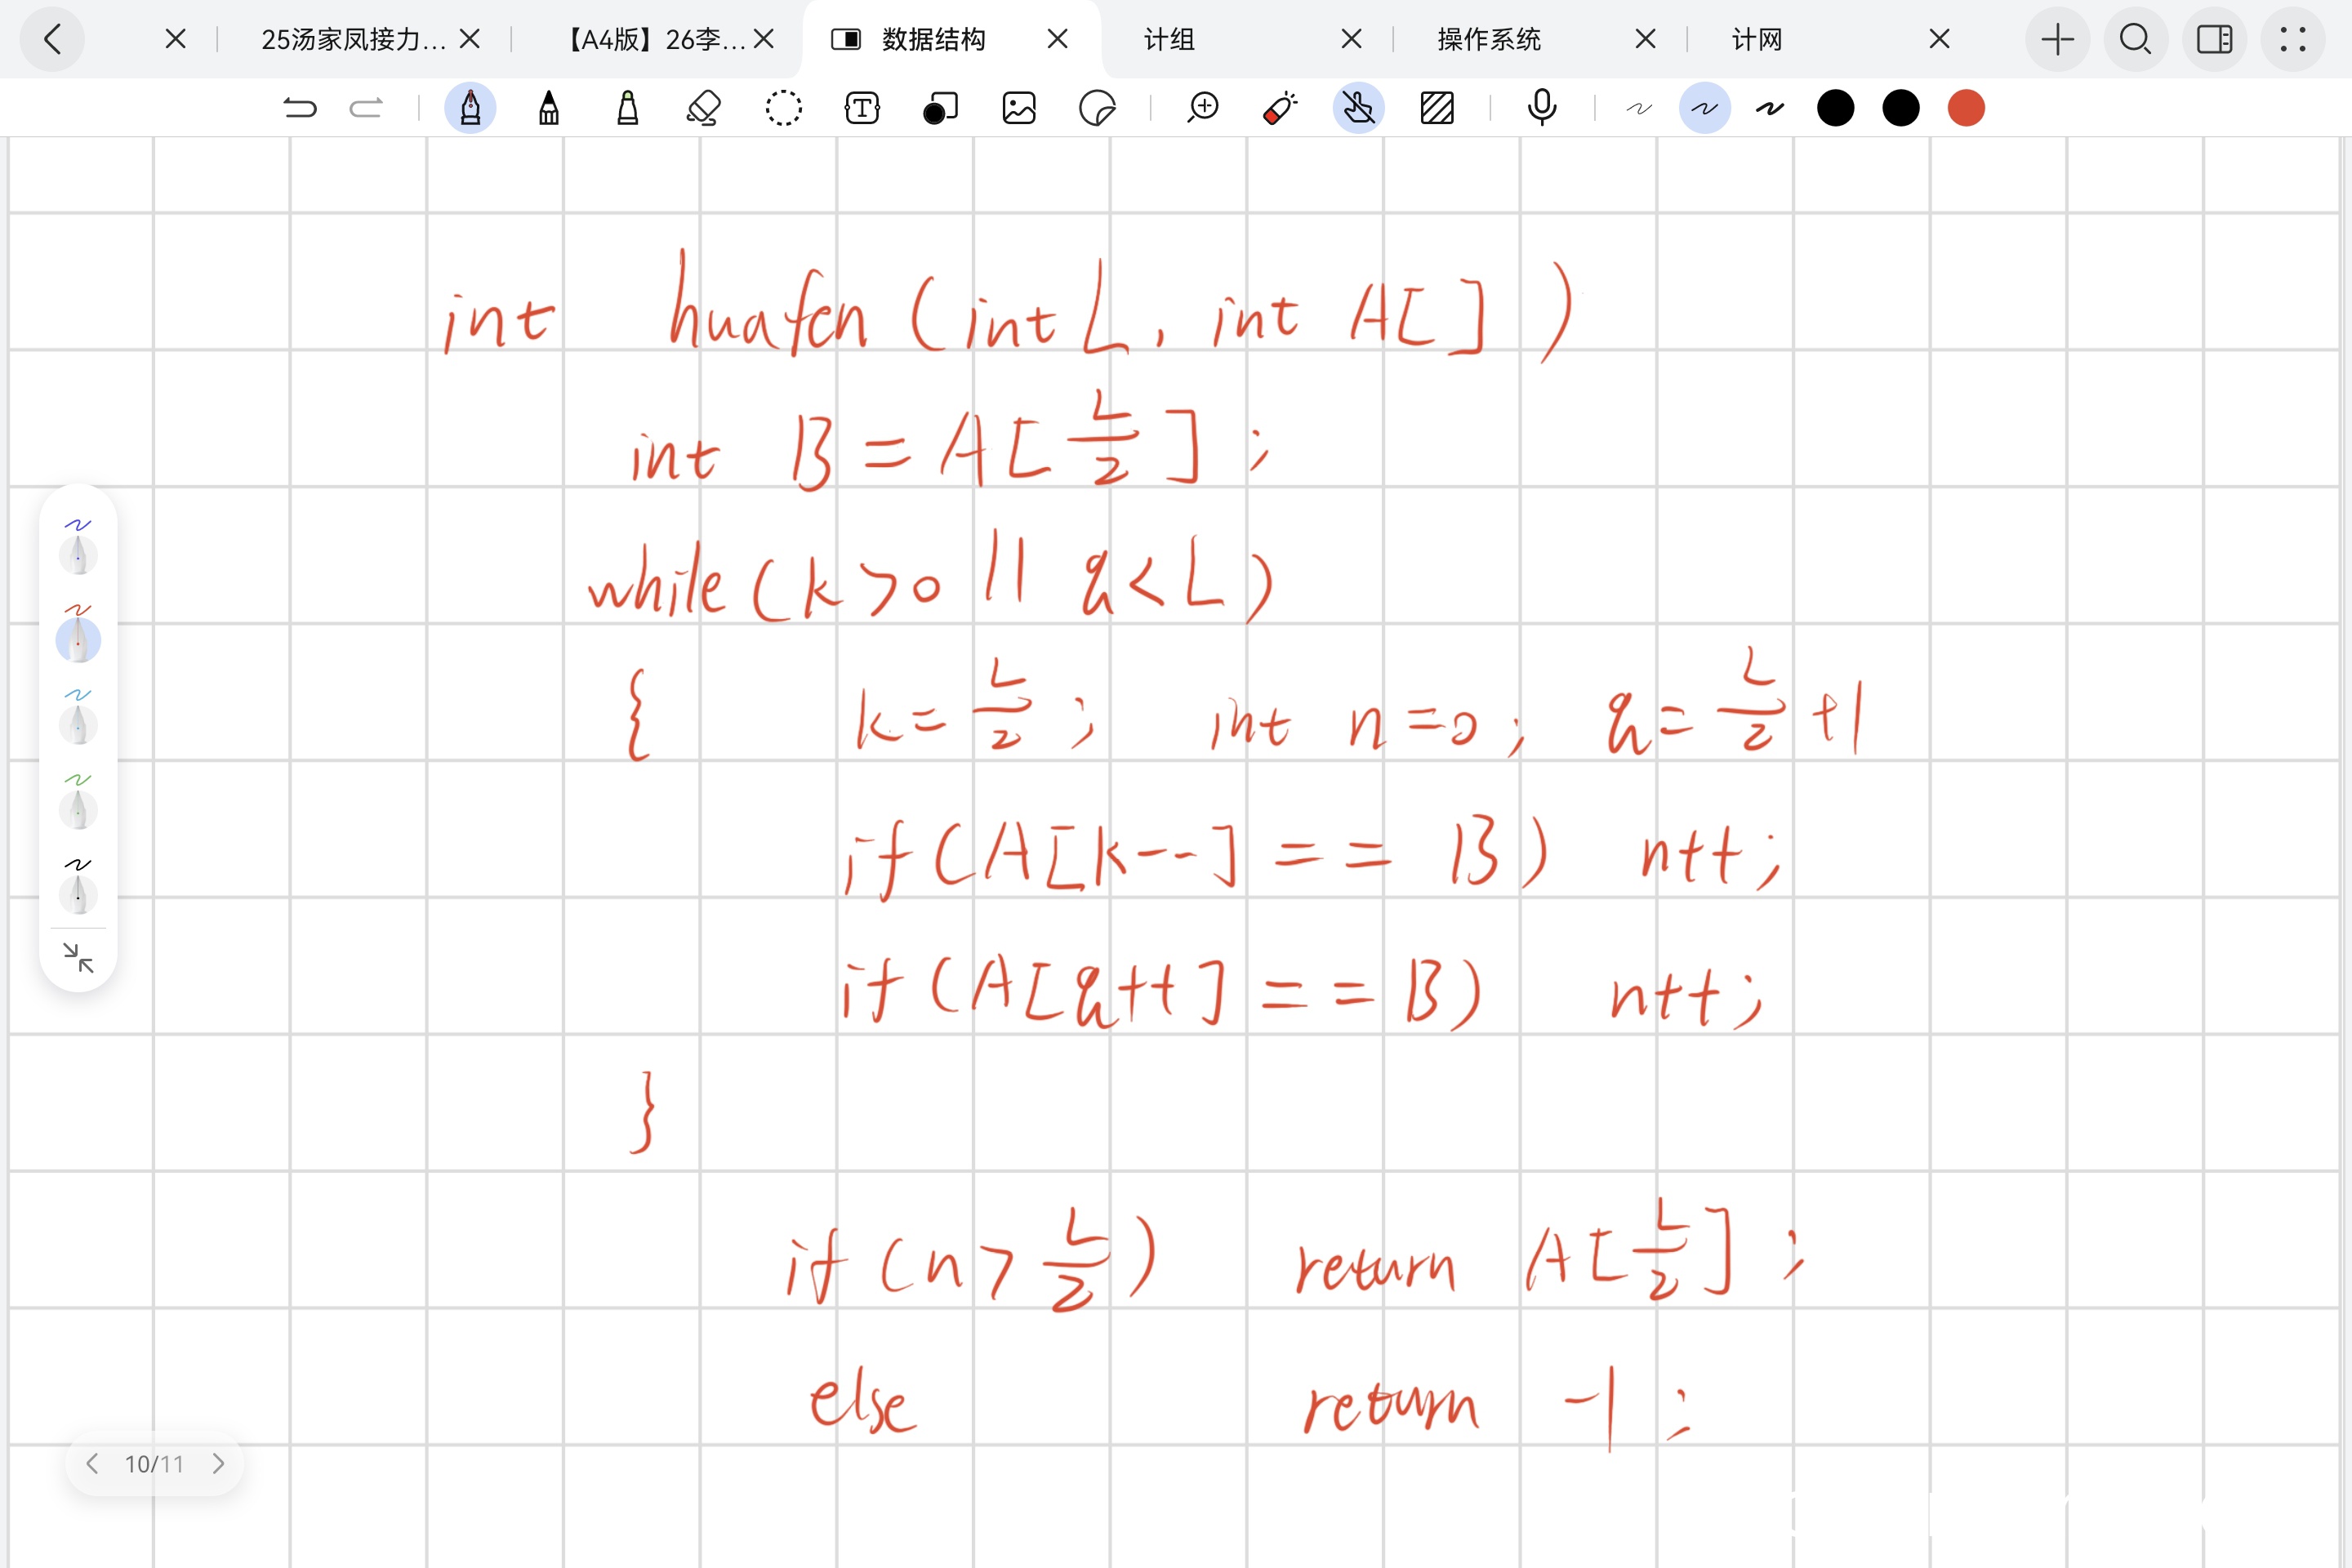 25汤家凤接力... 【A4版】26李... 数据结构 计组 操作系统 计网
int huafen (int L, int A[ ])
int B = A[L/2];
while (k>0 || q<L)
{ k=L/2; int n=0; q=L/2+1
if (A[k--] == B) n++;
if (A[q++] == B) n++;
}
if (n>L/2) return A[L/2];
else return -1;
10/11